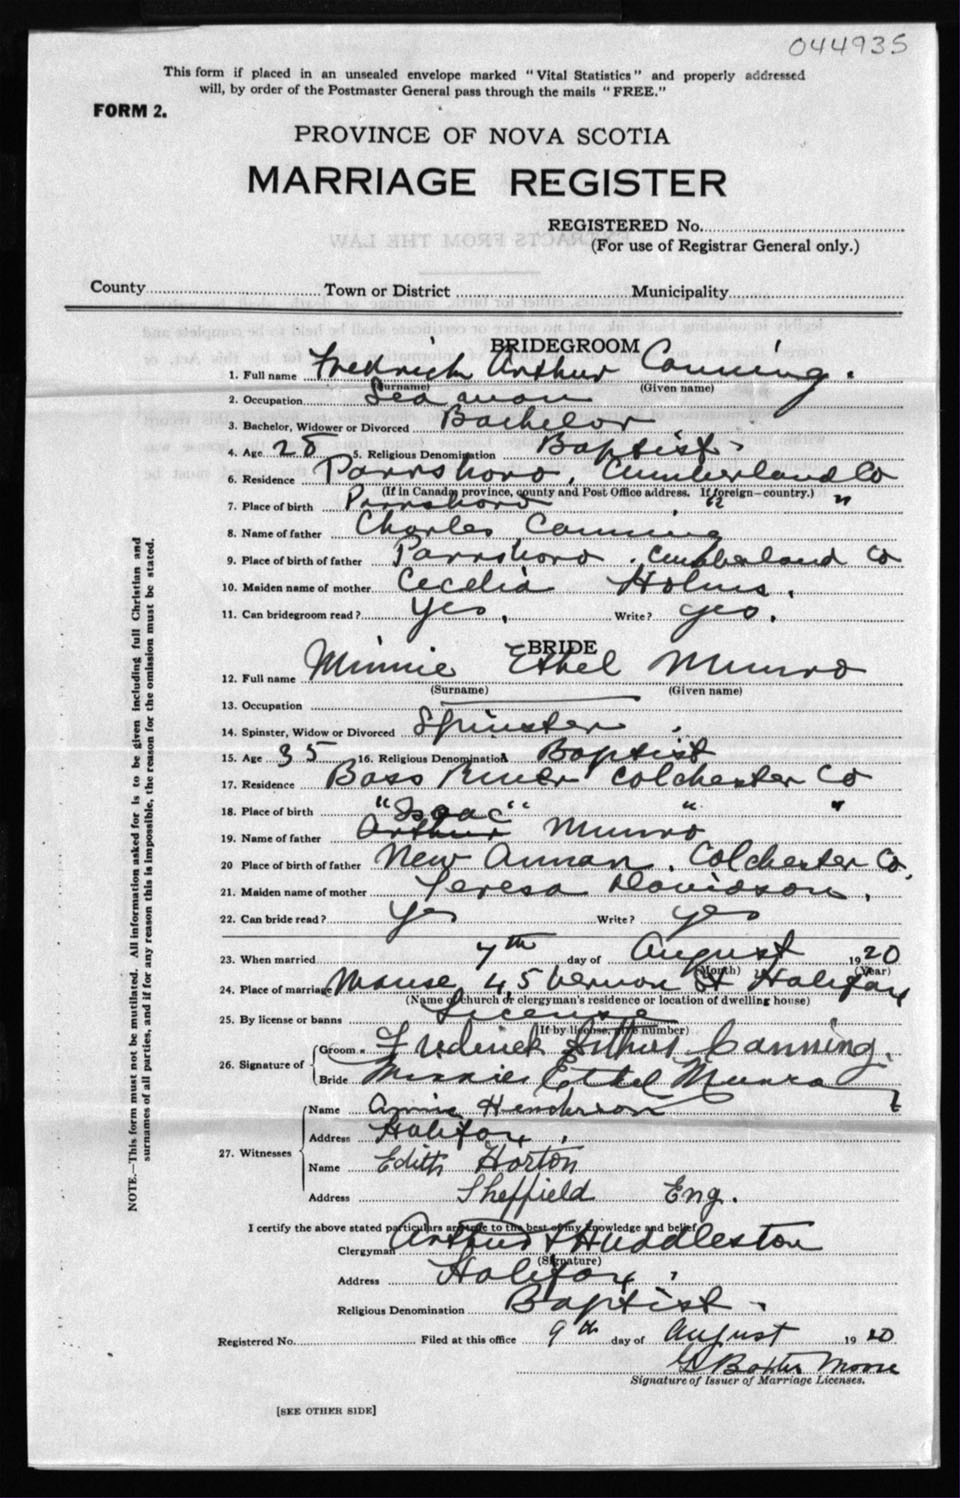 044935
This form if placed in an unsealed envelope marked "Vital Statistics" and properly addressed
will, by order of the Postmaster General pass through the mails "FREE."
FORM 2.
PROVINCE OF NOVA SCOTIA
MARRIAGE REGISTER
EXTRACTS FROM THE LAW
REGISTERED No.
(For use of Registrar General only.)
County Town or District Municipality
BRIDEGROOM
1. Full name Fredrick Arthur Canning.
(Surname) (Given name)
2. Occupation Seaman
3. Bachelor, Widower or Divorced Bachelor
4. Age 28 5. Religious Denomination Baptist
6. Residence Parrsboro, Cumberland Co
(If in Canada, province, county and Post Office address. If foreign—country.)
7. Place of birth Parrsboro " "
8. Name of father Charles Canning
9. Place of birth of father Parrsboro. Cumberland Co
10. Maiden name of mother Cecelia Holms.
11. Can bridegroom read? yes. Write? yes.
BRIDE
12. Full name Minnie Ethel Munro
(Surname) (Given name)
13. Occupation
14. Spinster, Widow or Divorced Spinster.
15. Age 35 16. Religious Denomination Baptist
17. Residence Bass River Colchester Co
18. Place of birth " " " "
"Isaac"
19. Name of father Arthur Munro
20 Place of birth of father New Annan. Colchester Co.
21. Maiden name of mother Teresa Davidson.
22. Can bride read? yes Write? yes
23. When married 7th day of August 1920
(Month) (Year)
24. Place of marriage Manse, 45 Vernon St Halifax
(Name of church or clergyman's residence or location of dwelling house)
25. By license or banns License
(If by license, give number)
26. Signature of Groom Frederick Arthur Canning.
Bride Minnie Ethel Munro
27. Witnesses Name Annie Henderson
Address Halifax.
Name Edith Horton
Address Sheffield Eng.
I certify the above stated particulars are true to the best of my knowledge and belief.
Clergyman Arthur Huddleston
(Signature)
Address Halifax.
Religious Denomination Baptist.
Registered No. Filed at this office 9th day of August 1920
Baxter Moore
Signature of Issuer of Marriage Licenses.
[SEE OTHER SIDE]
NOTE.—This form must not be mutilated. All information asked for is to be given including full Christian and
surnames of all parties, and if for any reason this is impossible, the reason for the omission must be stated.